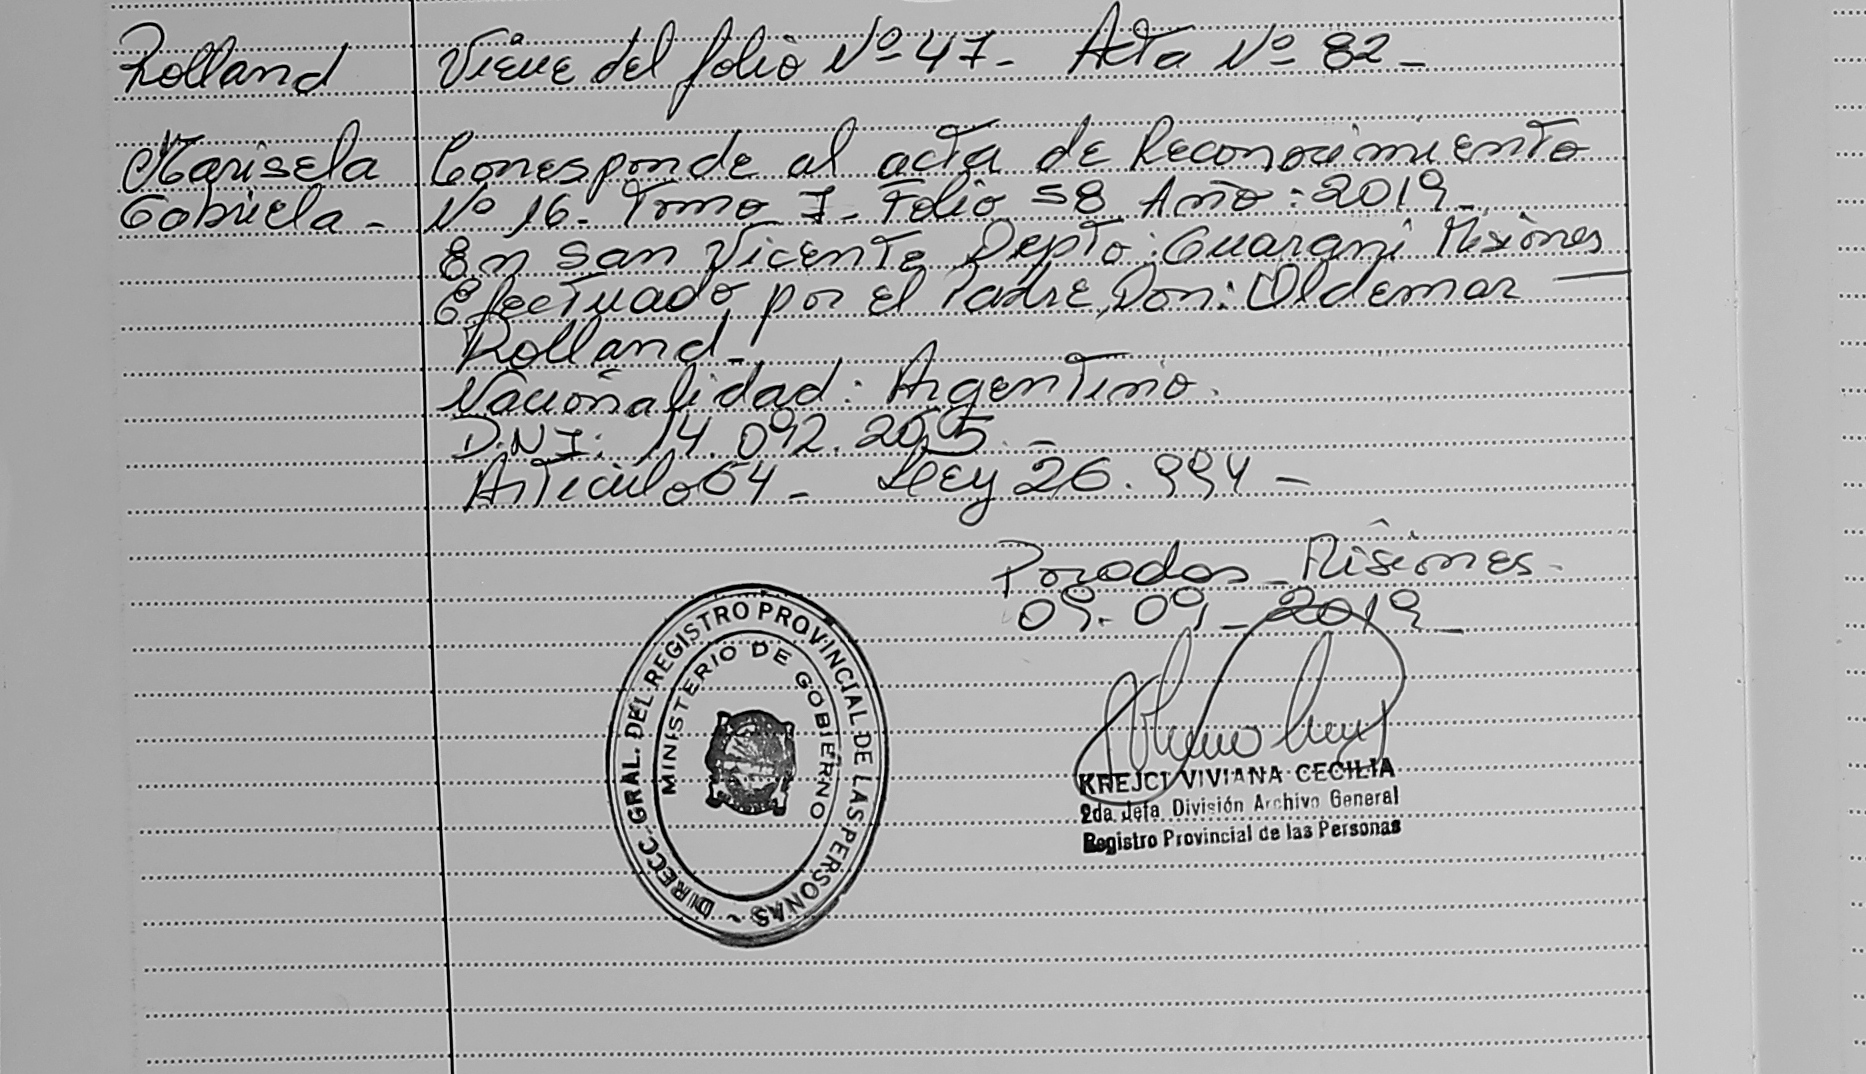 Rolland
Viene del folio Nº 47- Acta Nº 82-
Marisela
Gabriela-
Corresponde al acta de Reconocimiento
Nº 16- Tomo I- Folio 58 Año: 2019-
En San Vicente Depto: Guarani Misiones
Efectuado por el Padre, Don: Oldemar —
Rolland-
Nacionalidad: Argentino.
D.N.I: 14.092.205.-
Articulo 64- Ley 26.994-
Posadas- Misiones-
09-09-2019-
DIRECC. GRAL. DEL REGISTRO PROVINCIAL DE LAS PERSONAS -
MINISTERIO DE GOBIERNO
KREJCI VIVIANA CECILIA
2da. Jefa División Archivo General
Registro Provincial de las Personas